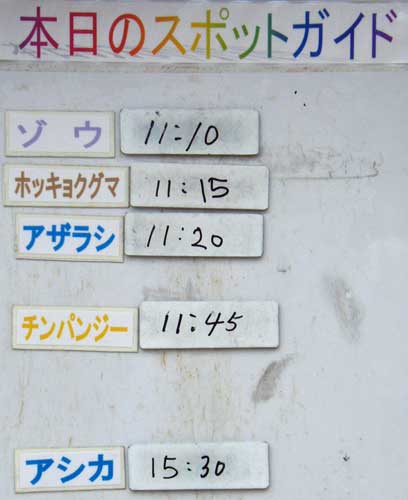 本日のスポットガイド
ゾウ 11:10
ホッキョクグマ 11:15
アザラシ 11:20
チンパンジー 11:45
アシカ 15:30